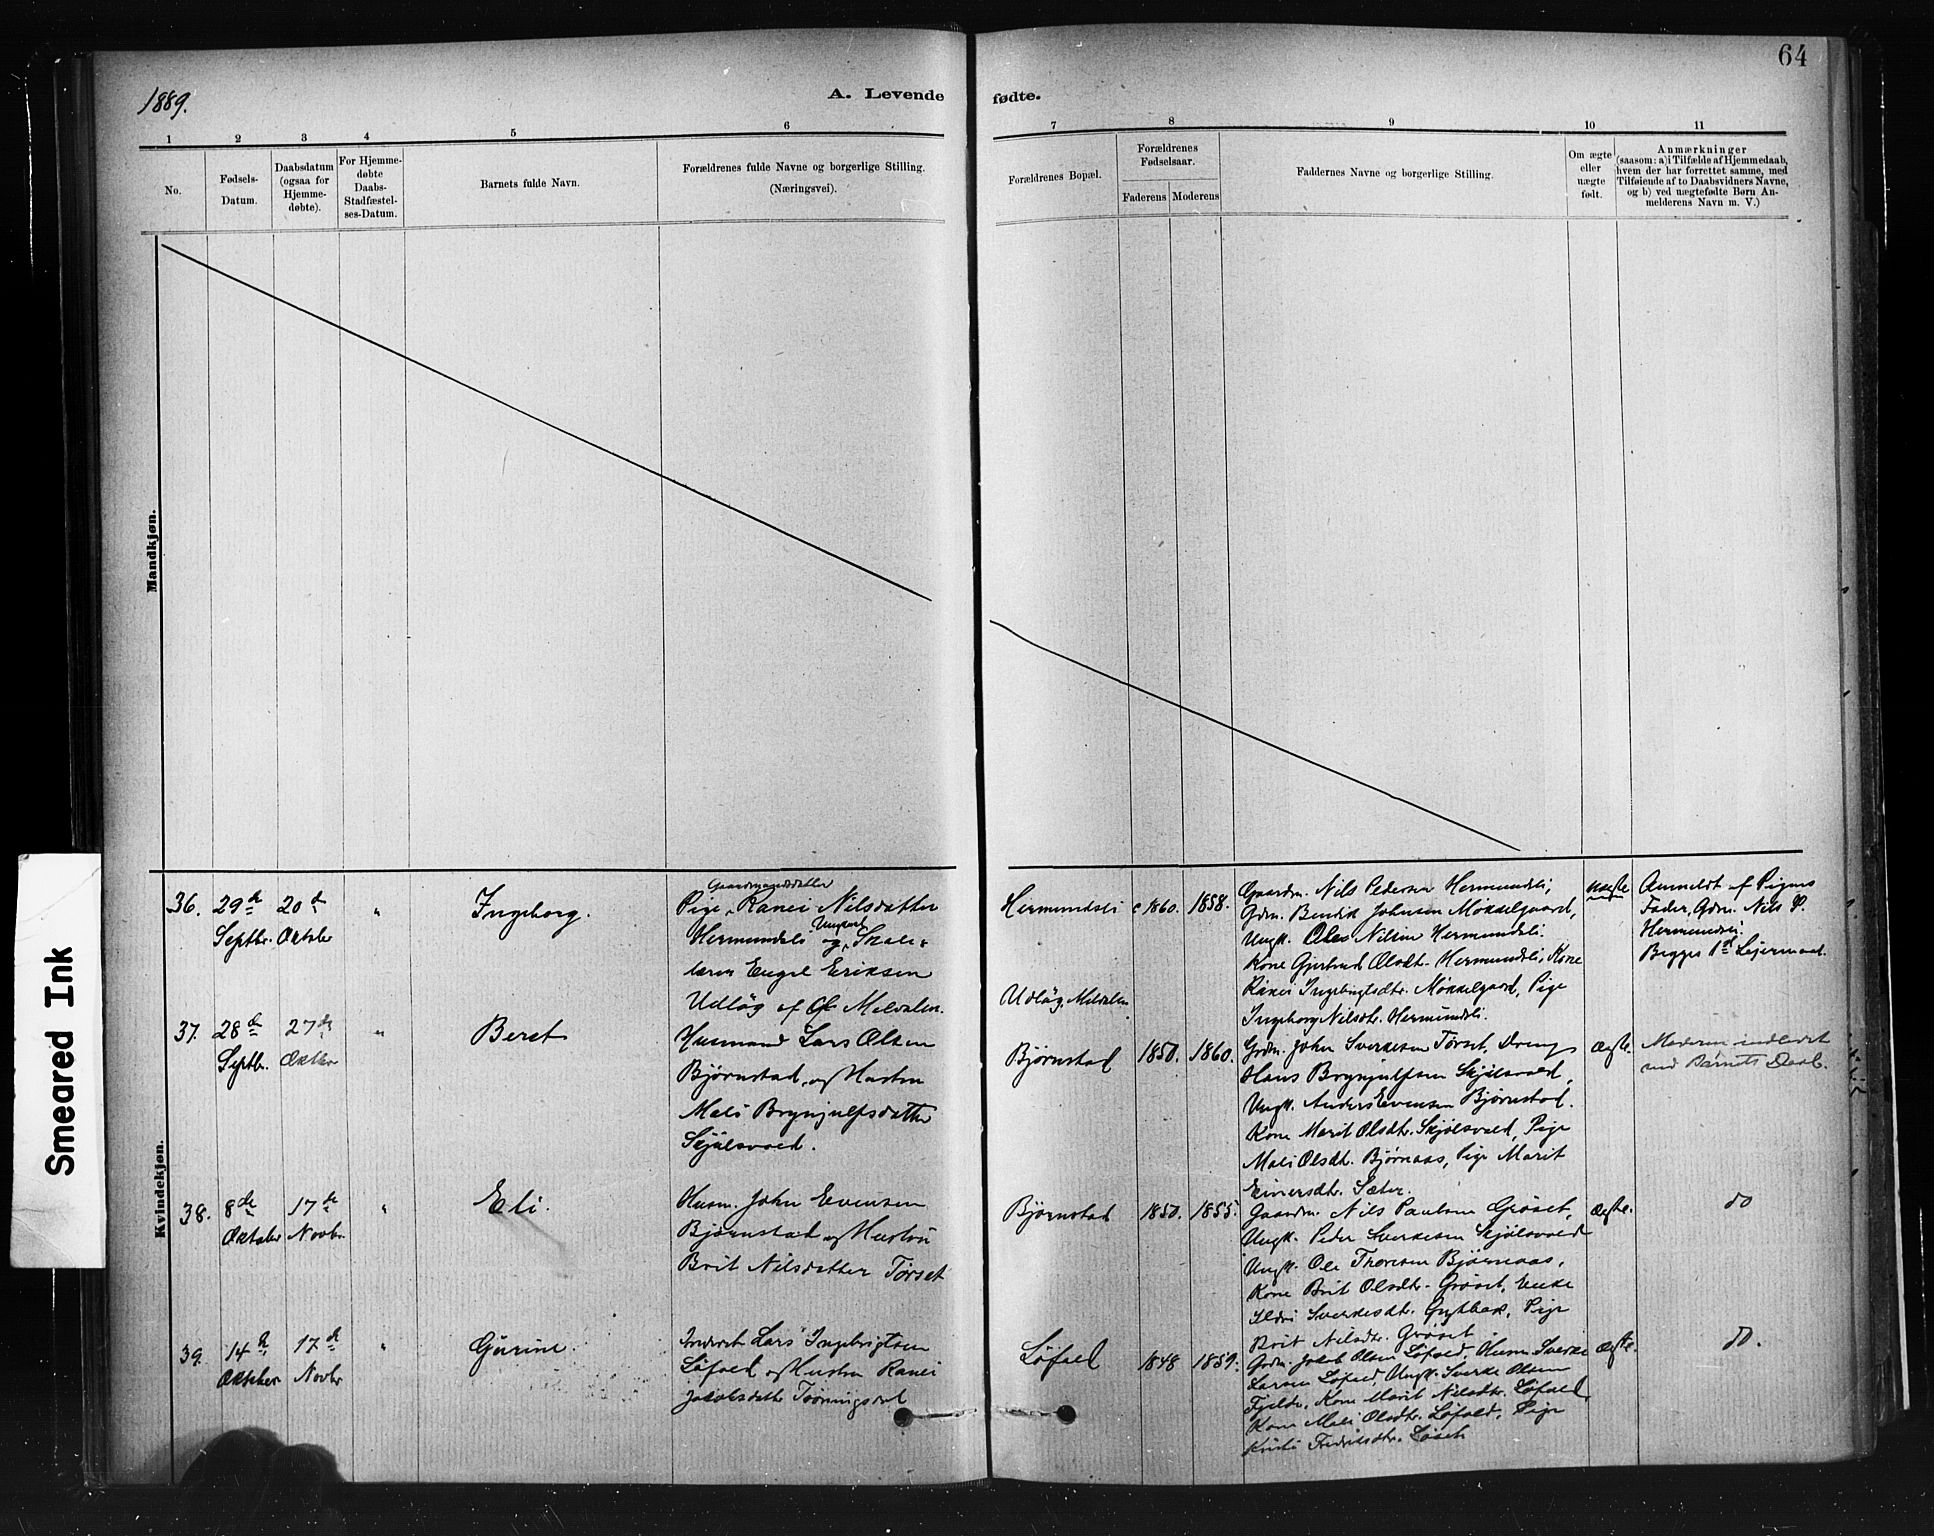 64
1889.
A. Levende
fødte.
1 2 3 4 5 6
7 8 9 10 11
No.
Fødsels-
Datum.
Daabsdatum
(ogsaa for
Hjemme-
døbte).
For Hjemme-
døbte
Daabs-
Stadfæstel-
ses-Datum.
Barnets fulde Navn.
Forældrenes fulde Navne og borgerlige Stilling.
(Næringsvei).
Forældrenes Bopæl.
Forældrenes
Fødselsaar.
Faderens
Moderens
Faddernes Navne og borgerlige Stilling.
Om ægte
eller
uægte
født.
Anmærkninger
(saasom: a) i Tilfælde af Hjemmedaab,
hvem der har forrettet samme, med
Tilføiende af to Daabsvidners Navne,
og b) ved uægtefødte Børn An-
melderens Navn m. V.)
Mandkjøn.
Kvindekjøn.
Smeared Ink
36.
29de
Septbr.
20de
Oktober
"
Ingeborg.
Gaardmandsdatter
Pige, Ranei Nilsdatter
Hermundsli og Ungkarl Skole-
lærer Engel Eriksen
Udløg af Melvalen.
Hermundsli
Udløg, Melvalen
1860.
1858.
Gaardm. Nils Pedersen Hermundsli,
Gdm. Bendik Johnsen Mokkelgaard,
Ungk. Ole Nilsen Hermundsli
Kone Gjertrud Olsdtr. Hermundsli, Kone
Ranei Ingebrigtsdtr. Mokkelgaard, Pige
Ingeborg Nilsdtr. Hermundsli.
Uægte
Anmeldt af Pigens
Fader, Gdm. Nils P.
Hermundsli.
Begges 1ste Leiermaal.
37.
28de
Septbr.
27de
Oktbr
"
Beret
Husmand Lars Olsen
Bjørnstad, og Hustru
Mali Brynjulfsdatter
Skjølsvold.
Bjørnstad
1850.
1860.
Gdm. John Sverkesen Tørset, Dreng
Hans Brynjulfsen Skjølsvold,
Ungk. Anders Evensen Bjørnstad.
Kone Marit Olsdtr. Skjølsvold, Pige
Mali Olsdtr. Bjørnaas, Pige Marit
Einersdtr. Sæter.
Ægte.
Moderen indledet
ved Barnets Daab.
38.
8de
Oktober
17de
Novbr.
"
Eli.
Husm. John Evensen
Bjørnstad og Hustru
Brit Nilsdatter Tørset
Bjørnstad
1850.
1855.
Gaardm. Nils Paulsen Grøset,
Ungk. Peder Sverkesen Skjølsvold
Ungk. Ole Thoresen Bjørnaas,
Kone Brit Olsdtr. Grøset, Enke
Ildri Sverkesdtr. Grythaas, Pige
Brit Nilsdtr. Grøset
Ægte.
do
39.
14de
Oktober
17de
Novbr
"
Gurine.
Inderst Lars Ingebrigtsen
Løfald og Hustru Ranei
Jakobsdatter Tørningsdal
Løfald
1848
1859.
Gdm. Jakob Olsen Løfald, Husm Sverke
Larsen Løfald, Ungk. Sverke Olsen
Fjelde, Kone Marit Nilsdtr. Løfald
Kone Mali Olsdtr. Løfald, Pige
Kristi Fredriksdtr. Løset
Ægte.
do.